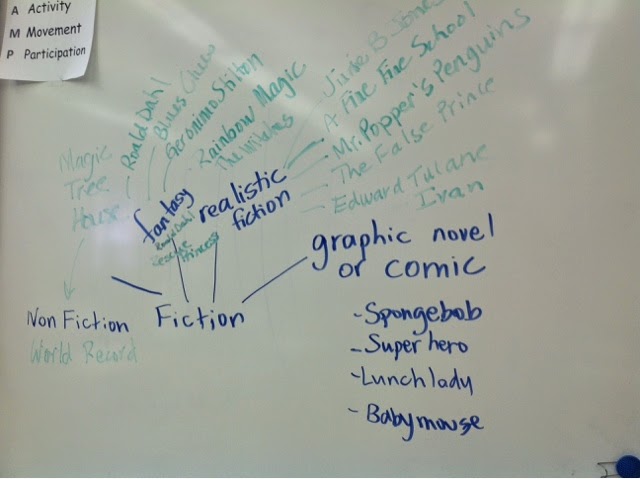 A Activity
M Movement
P Participation
Magic
Tree
House
Roald Dahl
Blues Clues
Geronimo Stilton
Rainbow Magic
The Wild
Junie B Jones
A Fine Fine School
Mr. Popper's Penguins
The False Prince
Edward Tulane
Ivan
fantasy
Roald Dahl
Rescue
Princess
realistic
fiction
graphic novel
or comic
Non Fiction
World Record
Fiction
-Spongebob
-Super hero
-Lunch lady
-Babymouse